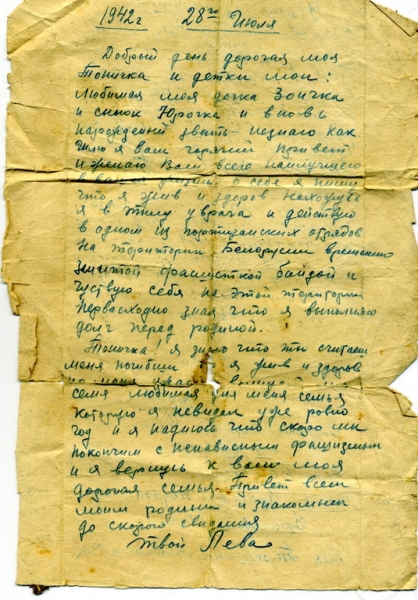 1942г 28го Июля
Добрый день дорогая моя
Тоничка и детки мои:
Любимая моя дочка Зоичка
и сынок Юрочка и вновь
нарожденный звать незнаю как
Шлю я Вам горячий привет
и желаю Вам всего наилучшего
в вашей жизни. о себе я пишу
что я жив и здоров нахожусь
я в тылу у врага и действую
в одном из партизанских отрядов
на территории Белорусии временно
занятой фашисткой бандой и
чуствую себя на этой територии
первосходно зная что я выполняю
долг перед родиной.
Тоничка! я знаю что ты считаеш
меня погибши я жив и здоров
семя любимая для меня семья
которую я невидел уже ровно
год и я надеюсь что скоро мы
покончим с ненависным фашизмом
и я вернусь к вам моя
дорогая семья. Привет всем
моим родным и знакомым
до скорого свидания
твой Лева